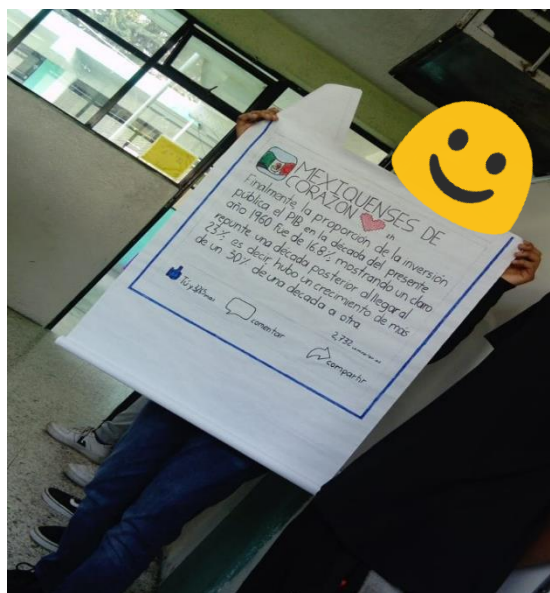 MEXIQUENSES DE
CORAZÓN
Finalmente, la proporción de la inversión
pública el PIB en la década del presente
año 1960 fue de 16.8%, mostrando un claro
repunte una década posterior, al llegar al
23% es decir, hubo un crecimiento de más
de un 30% de una década a otra.
Tú y
2,732
comentar
compartir